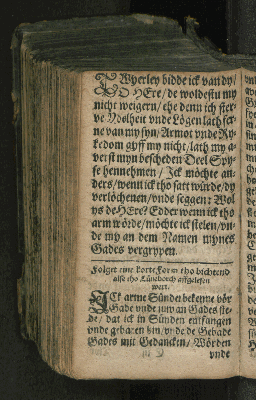 TWyerley bidde ick van dy/
HEre/ de woldestu my
nicht weigern/ ehe denn ick ster-
ve Valheit vnde Lögen lath fer-
ne van my syn/ Armot vnde Ry-
kedom gyff my nicht/ lath my a-
verst myn bescheden Deel Spy-
se hennehmen/ Ick möchte an-
ders/ wenn ick tho satt würde/ dy
verlöchenen/ vnde seggen: Wol
ys de HEre? Edder wenn ick tho
arm wörde/ möchte ick stelen/ vn-
de my an dem Namen mynes
Gades vergrypen.
Folget eine korte Form tho bichtend
alse tho Lüneborch affgelesen
wert.
ICk arme Sünder bekenne vör
Gade vnde juw an Gades ste-
de/ dat ick in Sünden entfangen
vnde gebaren bin/ vnde de Gebade
Gades mit Gedancken/ Wörden
vnde